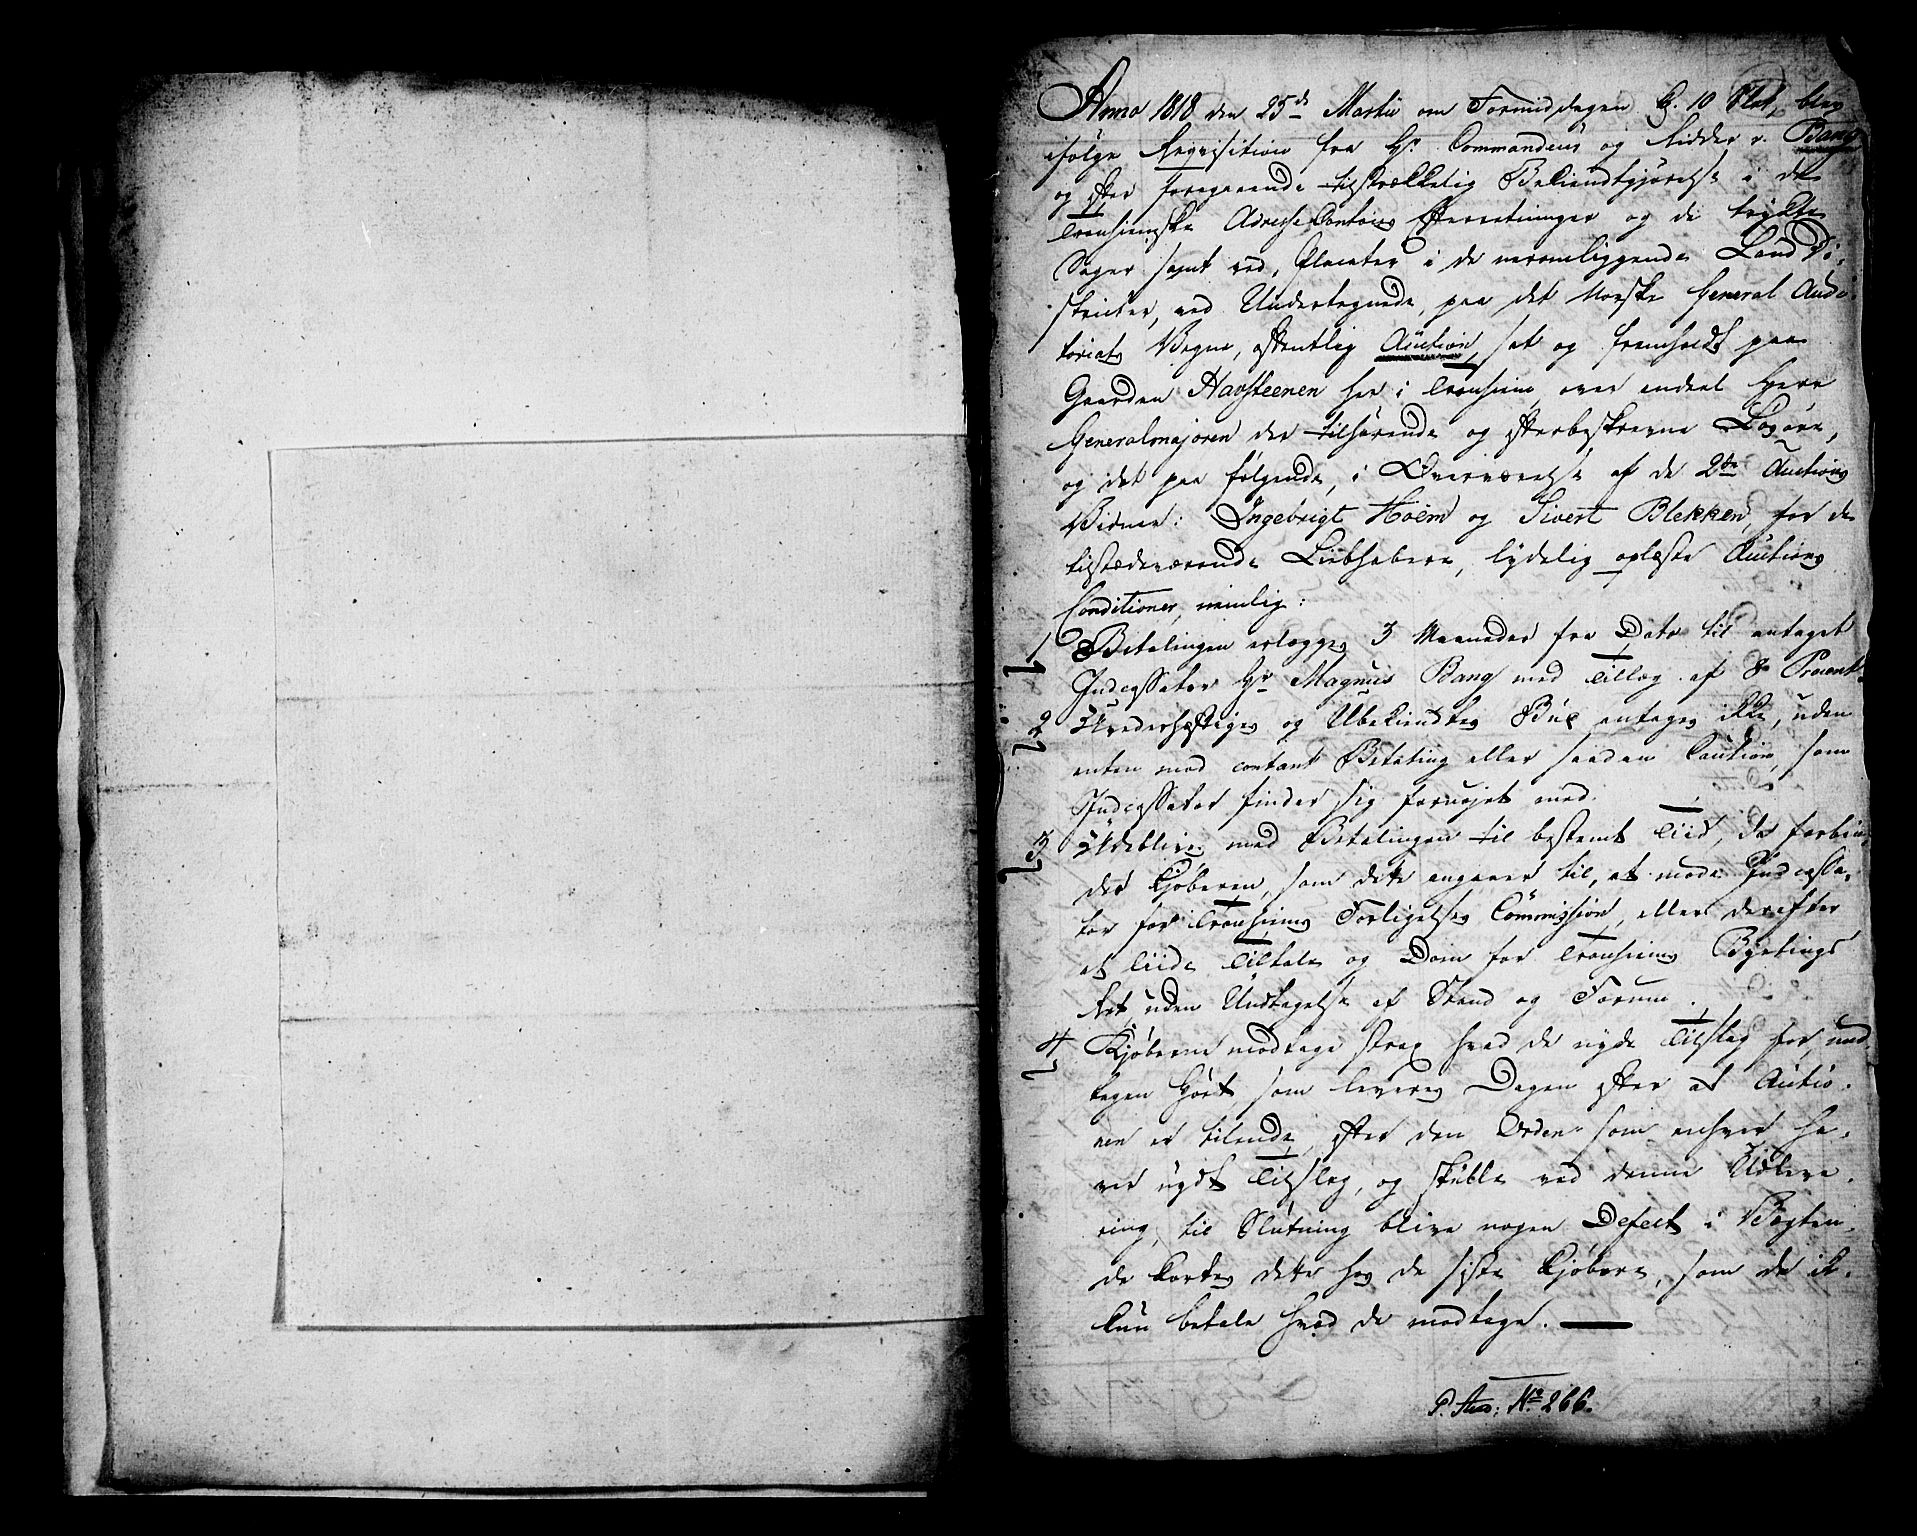 Anno 1818 den 25de Martii om Formiddagen Kl. 10 Slet, blev
ifølge Reqvisition fra Hr. Commandeur og Ridder v. Bang
og efter foregaaende tilstrækkelig Bekiendtgjørelse i de
Tronhiemske Adresse Contoirs Efterretninger og de trykte
Sager samt ved Placater i de nærmeliggende Land Di-
stricter, ved Undertegnede, paa det Norske General Audi-
toriats Vegne, offentlig Auction, sat og fremholdt paa
Gaarden Havsteenen her i Tronhiem over endeel Herr
Generalmajoren der tilhørende og efterbeskrevne Løsøre,
og det paa følgende, i Overværelse af de 2de Auctions
Vidner: Ingebrigt Hoëm og Sivert Blekken, for de
tilstædeværende Liebhabere, lydelig oplæste Auctions
Conditioner, nemlig:
1 Betalingen erlægges 3 Maaneder fra Dato til antaget
Indcassator Hr Magnus Bang med Tillæg af 8 Procent.
2 Uvederhæftiges og Ubekiendtes Bud antages ikke, uden
enten mod contant Betaling eller saadan Caution, som
Indcassator finder sig fornøjet med.
3 Udeblives med Betalingen til bestemt Tiid, da forbin-
der Kjøberen, som dette angaaer til, at møde Indcassa-
tor for Tronhiems Forligelses Commission, eller derefter
at liide Tiltale og Dom for Tronhiems Byetings
Ret uden Undtagelse af Stand og Forum.
4 Kjøberne modtage strax hvad de nyde Tilslag for, und-
tagen Høet, som leveres Dagen efter at Auctio-
nen er tilende, efter den Orden som enhver ha-
ver nydt Tilslag, og skulle ved denne Udleve-
ring, til Slutning blive nogen Defect i Vægten,
da kortes dette hos de siste Kjøbere, som da ik-
kun betale hvad de modtage.
P. Aus: No 266.